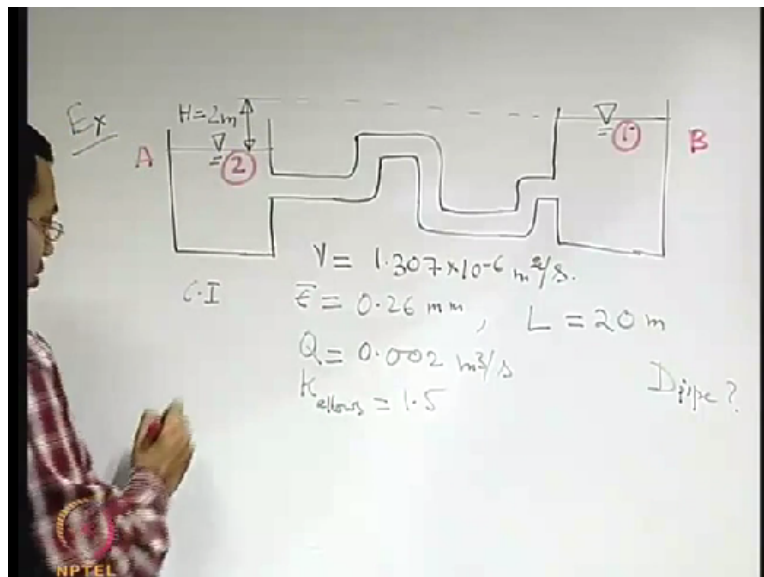 Ex
H=2m
A
2
1
B
ν = 1.307*10-6 m²/s.
C.I
ε̄ = 0.26 mm, L = 20 m
Q = 0.002 m3/s
Kelbows = 1.5
Dpipe?
NPTEL